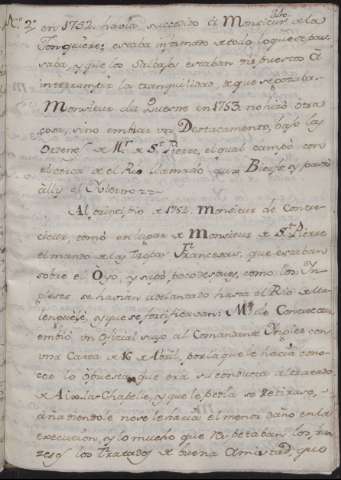 en 1752 havia succedido à Monsieur de la
Jonquiere, estaba informado de todo lo que se pas
saba, y que los Salvajes estaban dispuestos à
interrumpir la tranquilidad de que se gozaba.
Monsieur du Quesne en 1753 no hizo otra
cosa, sino embiar un Destacamento, bajo las
Ordenes de Mr. de St. Pierre, el qual campó con
el cerca de el Rio llamado
alli el Ybierno
Al principio de 1752. Monsieur de Contre
cœur, tomó en lugar de Monsieur de St. Pierre
el mando de las Tropas Francesas, que estaban
sobre el Oyo, y supó, poco despues, como los In
gleses se havian adelantado hasta el Rio de
y que se fortificaban: Mr. de Contrecœur
embió un Oficial suyo al Comandante Ingles con
una Carta de 16 de Abril, por la que le hacia cono
cer lo opuesta que era su conducta al tratado
de Aix-la-Chapelle, y que le pedia se retirase,
añadiendole no se le haria el menor daño en la
execucion, y lo mucho que respetaban los fran
zeses los tratados de buena Amistad, que